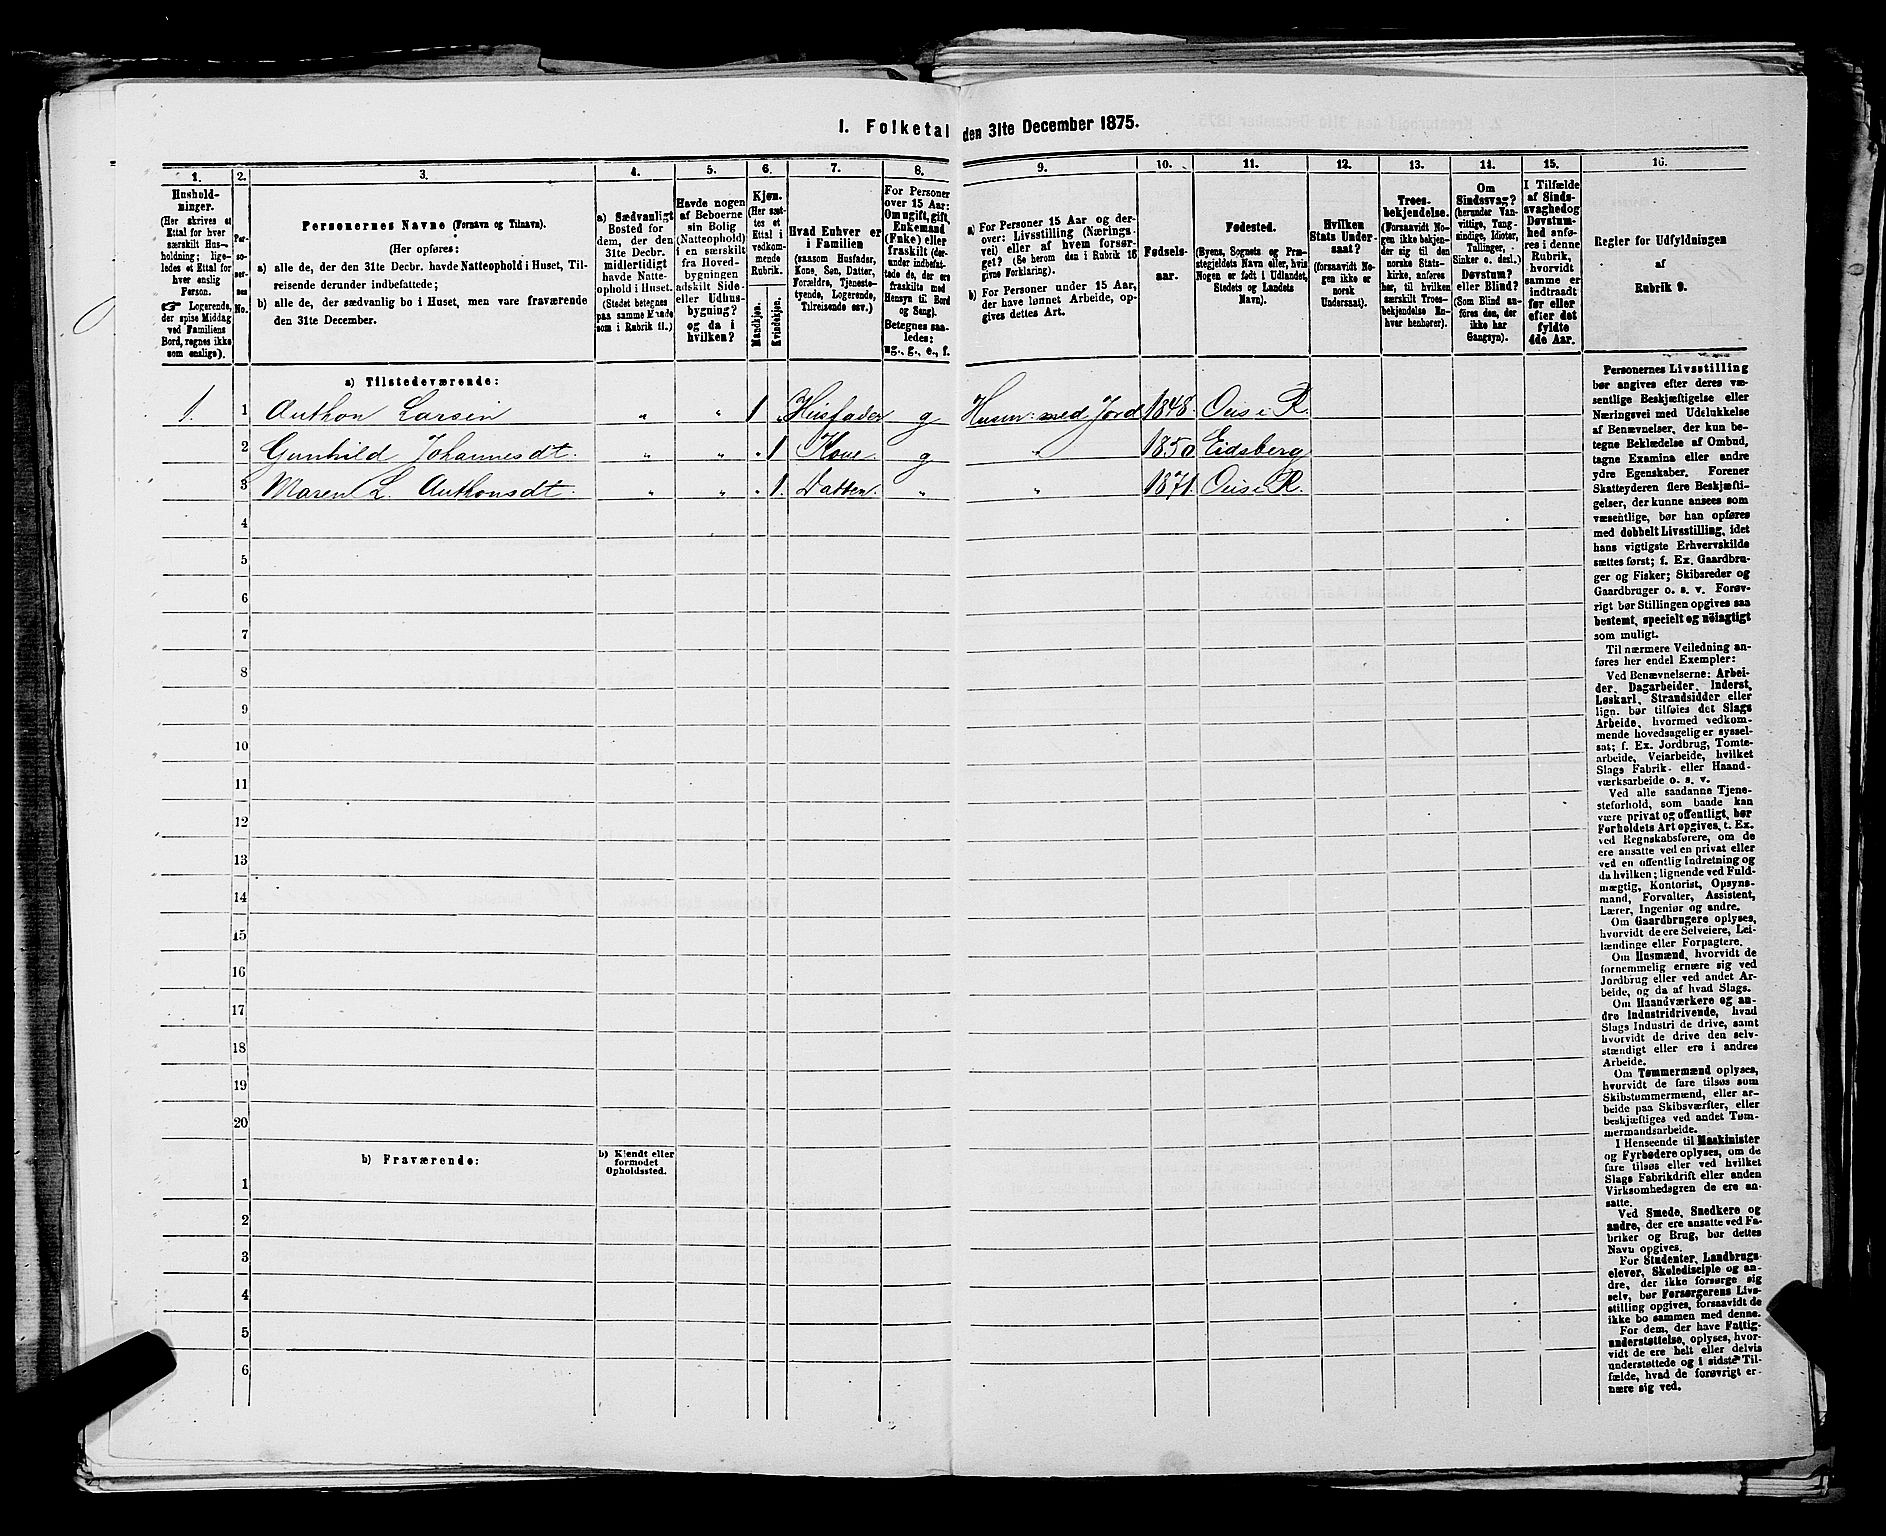 I. Folketal den 31te December 1875.
1. 2. 3. 4. 5. 6. 7. 8. 9. 10. 11. 12. 13. 14. 15. 16.
Hushold-
ninger.
(Her skrives et
Ettal for hver
særskilt Hus-
holdning; lige-
ledes et Ettal for
hver enslig
Person.
☞ Logerende,
der spise Middag
ved Familiens
Bord, regnes ikke
som enslige).
Per-
so-
ner-
nes
No.
Personernes Navne (Fornavn og Tilnavn).
(Her opføres:
a) alle de, der den 31te Decbr. havde Natteophold i Huset, Til-
reisende derunder indbefattede;
b) alle de, der sædvanlig bo i Huset, men vare fraværende
den 31te December.
a) Sædvanligt
Bosted for
dem, der den
31te Decbr.
midlertidigt
havde Natte-
ophold i Huset.
(Stedet betegnes
paa samme Maade
som i Rubrik 11.)
Havde nogen
af Beboerne
sin Bolig
(Natteophold)
i en særskilt
fra Hoved-
bygningen
adskilt Side-
eller Udhus-
bygning?
og da i
hvilken?
Kjøn.
(Her sæt-
tes et
Ettal i
vedkom-
mende
Rubrik.
Mandkjøn.
Kvindekjøn.
Hvad Enhver er
i Familien
(saasom Husfader,
Kone, Søn, Datter,
Forældre, Tjeneste-
tyende, Logerende,
Tilreisende osv.)
For Personer
over 15 Aar:
Om ugift, gift,
Enkemand
(Enke) eller
fraskilt (der-
under indbefat-
tede de, der ere
fraskilte med
Hensyn til Bord
og Seng).
Betegnes saa-
ledes:
ug., g., e., f.
a) For Personer 15 Aar og der-
over: Livsstilling (Nærings-
vei) eller af hvem forsør-
get? (Se herom den i Rubrik 16
givne Forklaring).
b) For Personer under 15 Aar,
der have lønnet Arbeide, op-
gives dettes Art.
Fødsels-
aar.
Fødested.
(Byens, Sognets og Præ-
stegjeldets Navn eller, hvis
Nogen er født i Udlandet,
Stedets og Landets
Navn).
Hvilken
Stats Under-
saat?
(forsaavidt No-
gen ikke er
norsk
Undersaat).
Troes-
bekjendelse.
(Forsaavidt No-
gen ikke bekjen-
der sig til den
norske Stats-
kirke, anføres
her, til hvilken
særskilt Troes-
bekjendelse En-
hver henhører).
Om
Sindssvag?
(herunder Van-
vittige, Tung-
sindige, Idioter,
Tullinger,
Sinker o. desl.)
Døvstum?
eller Blind?
(Som Blind an-
føres den, der
ikke har
Gangsyn).
I Tilfælde
af Sinds-
svaghed og
Døvstum-
hed anfø-
res i denne
Rubrik,
hvorvidt
samme er
indtraadt
før eller
efter det
fyldte
4de Aar.
Regler for Udfyldningen
af
Rubrik 9.
a) Tilstedeværende:
1. 1 Anthon Larsen „ „ 1 „ Husfader g Husm. med Jord 1848. Øus i R.
2 Gunhild Johannesdt. „ „ „ 1 Kone g „ 1850 Eidsberg
3 Maren L. Anthonsdt. „ „ „ 1. Datter. „ „ 1871. Øus i R.
4
5
6
7
8
9
10
11
12
13
14
15
16
17
18
19
20
b) Fraværende:
b) Kjendt eller
formodet
Opholdssted.
1
2
3
4
5
6
Personernes Livsstilling
bør angives efter deres væ-
sentlige Beskjæftigelse eller
Næringsvei med Udelukkelse
af Benævnelser, der kun be-
tegne Beklædelse af Ombud,
tagne Examina eller andre
ydre Egenskaber. Forener
Skatteyderen flere Beskjæfti-
gelser, der kunne ansees som
væsentlige, bør han opføres
med dobbelt Livsstilling, idet
hans vigtigste Erhvervskilde
sættes først; f. Ex. Gaardbru-
ger og Fisker; Skibsreder og
Gaardbruger o. s. v. Forøv-
rigt bør Stillingen opgives saa
bestemt, specielt og nöiagtigt
som muligt.
Til nærmere Veiledning an-
føres her endel Exempler:
Ved Benævnelserne: Arbei-
der, Dagarbeider, Inderst,
Løskarl, Strandsidder eller
lign. bør tilføies det Slags
Arbeide, hvormed vedkom-
mende hovedsagelig er syssel-
sat; f. Ex. Jordbrug, Tomte-
arbeide, Veiarbeide, hvilket
Slags Fabrik- eller Haand-
værksarbeide o. s. v.
Ved alle saadanne Tjene-
steforhold, som baade kan
være privat og offentligt, bør
Forholdets Art opgives, t. Ex.
ved Regnskabsførere, om de
ere ansatte ved en privat eller
ved en offentlig Indretning og
da hvilken; lignende ved Fuld-
mægtig, Kontorist, Opsyns-
mand, Forvalter, Assistent,
Lærer, Ingeniør og andre.
Om Gaardbrugere oplyses,
hvorvidt de ere Selveiere, Lei-
lændinge eller Forpagtere.
Om Husmænd, hvorvidt de
fornemmelig ernære sig ved
Jordbrug eller ved andet Ar-
beide, og da af hvad Slags.
Om Haandværkere og an-
dre Industridrivende, hvad
Slags Industri de drive, samt
hvorvidt de drive den selv-
stændigt eller ere i andres
Arbeide.
Om Tømmermænd oplyses,
hvorvidt de fare tilsøs som
Skibstømmermænd, eller ar-
beide paa Skibsværfter, eller
beskjæftiges ved andet Tøm-
mermandsarbeide.
I Henseende til Maskinister
og Fyrbødere oplyses, om de
fare tilsøs eller ved hvilket
Slags Fabrikdrift eller anden
Virksomhedsgren de ere an-
satte.
Ved Smede, Snedkere og
andre, der ere ansatte ved Fa-
briker og Brug, bør dettes
Navn opgives.
For Studenter, Landbrugs-
elever, Skoledisciple og an-
dre, der ikke forsørge sig
selv, bør Forsørgerens Livs-
stilling opgives, forsaavidt de
ikke bo sammen med denne.
For dem, der have Fattig-
understøttelse, oplyses, hvor-
vidt de ere helt eller delvis
understøttede og i sidste Til-
fælde, hvad de forøvrigt er-
nære sig ved.